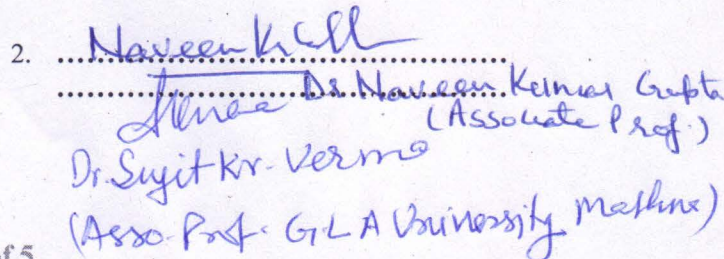 2. Naveen
Dr. Naveen Kumar Gupta
(Associate Prof.)
Dr. Sujit Kr. Verma
(Asso. Prof. G L A University Mathura)
of 5